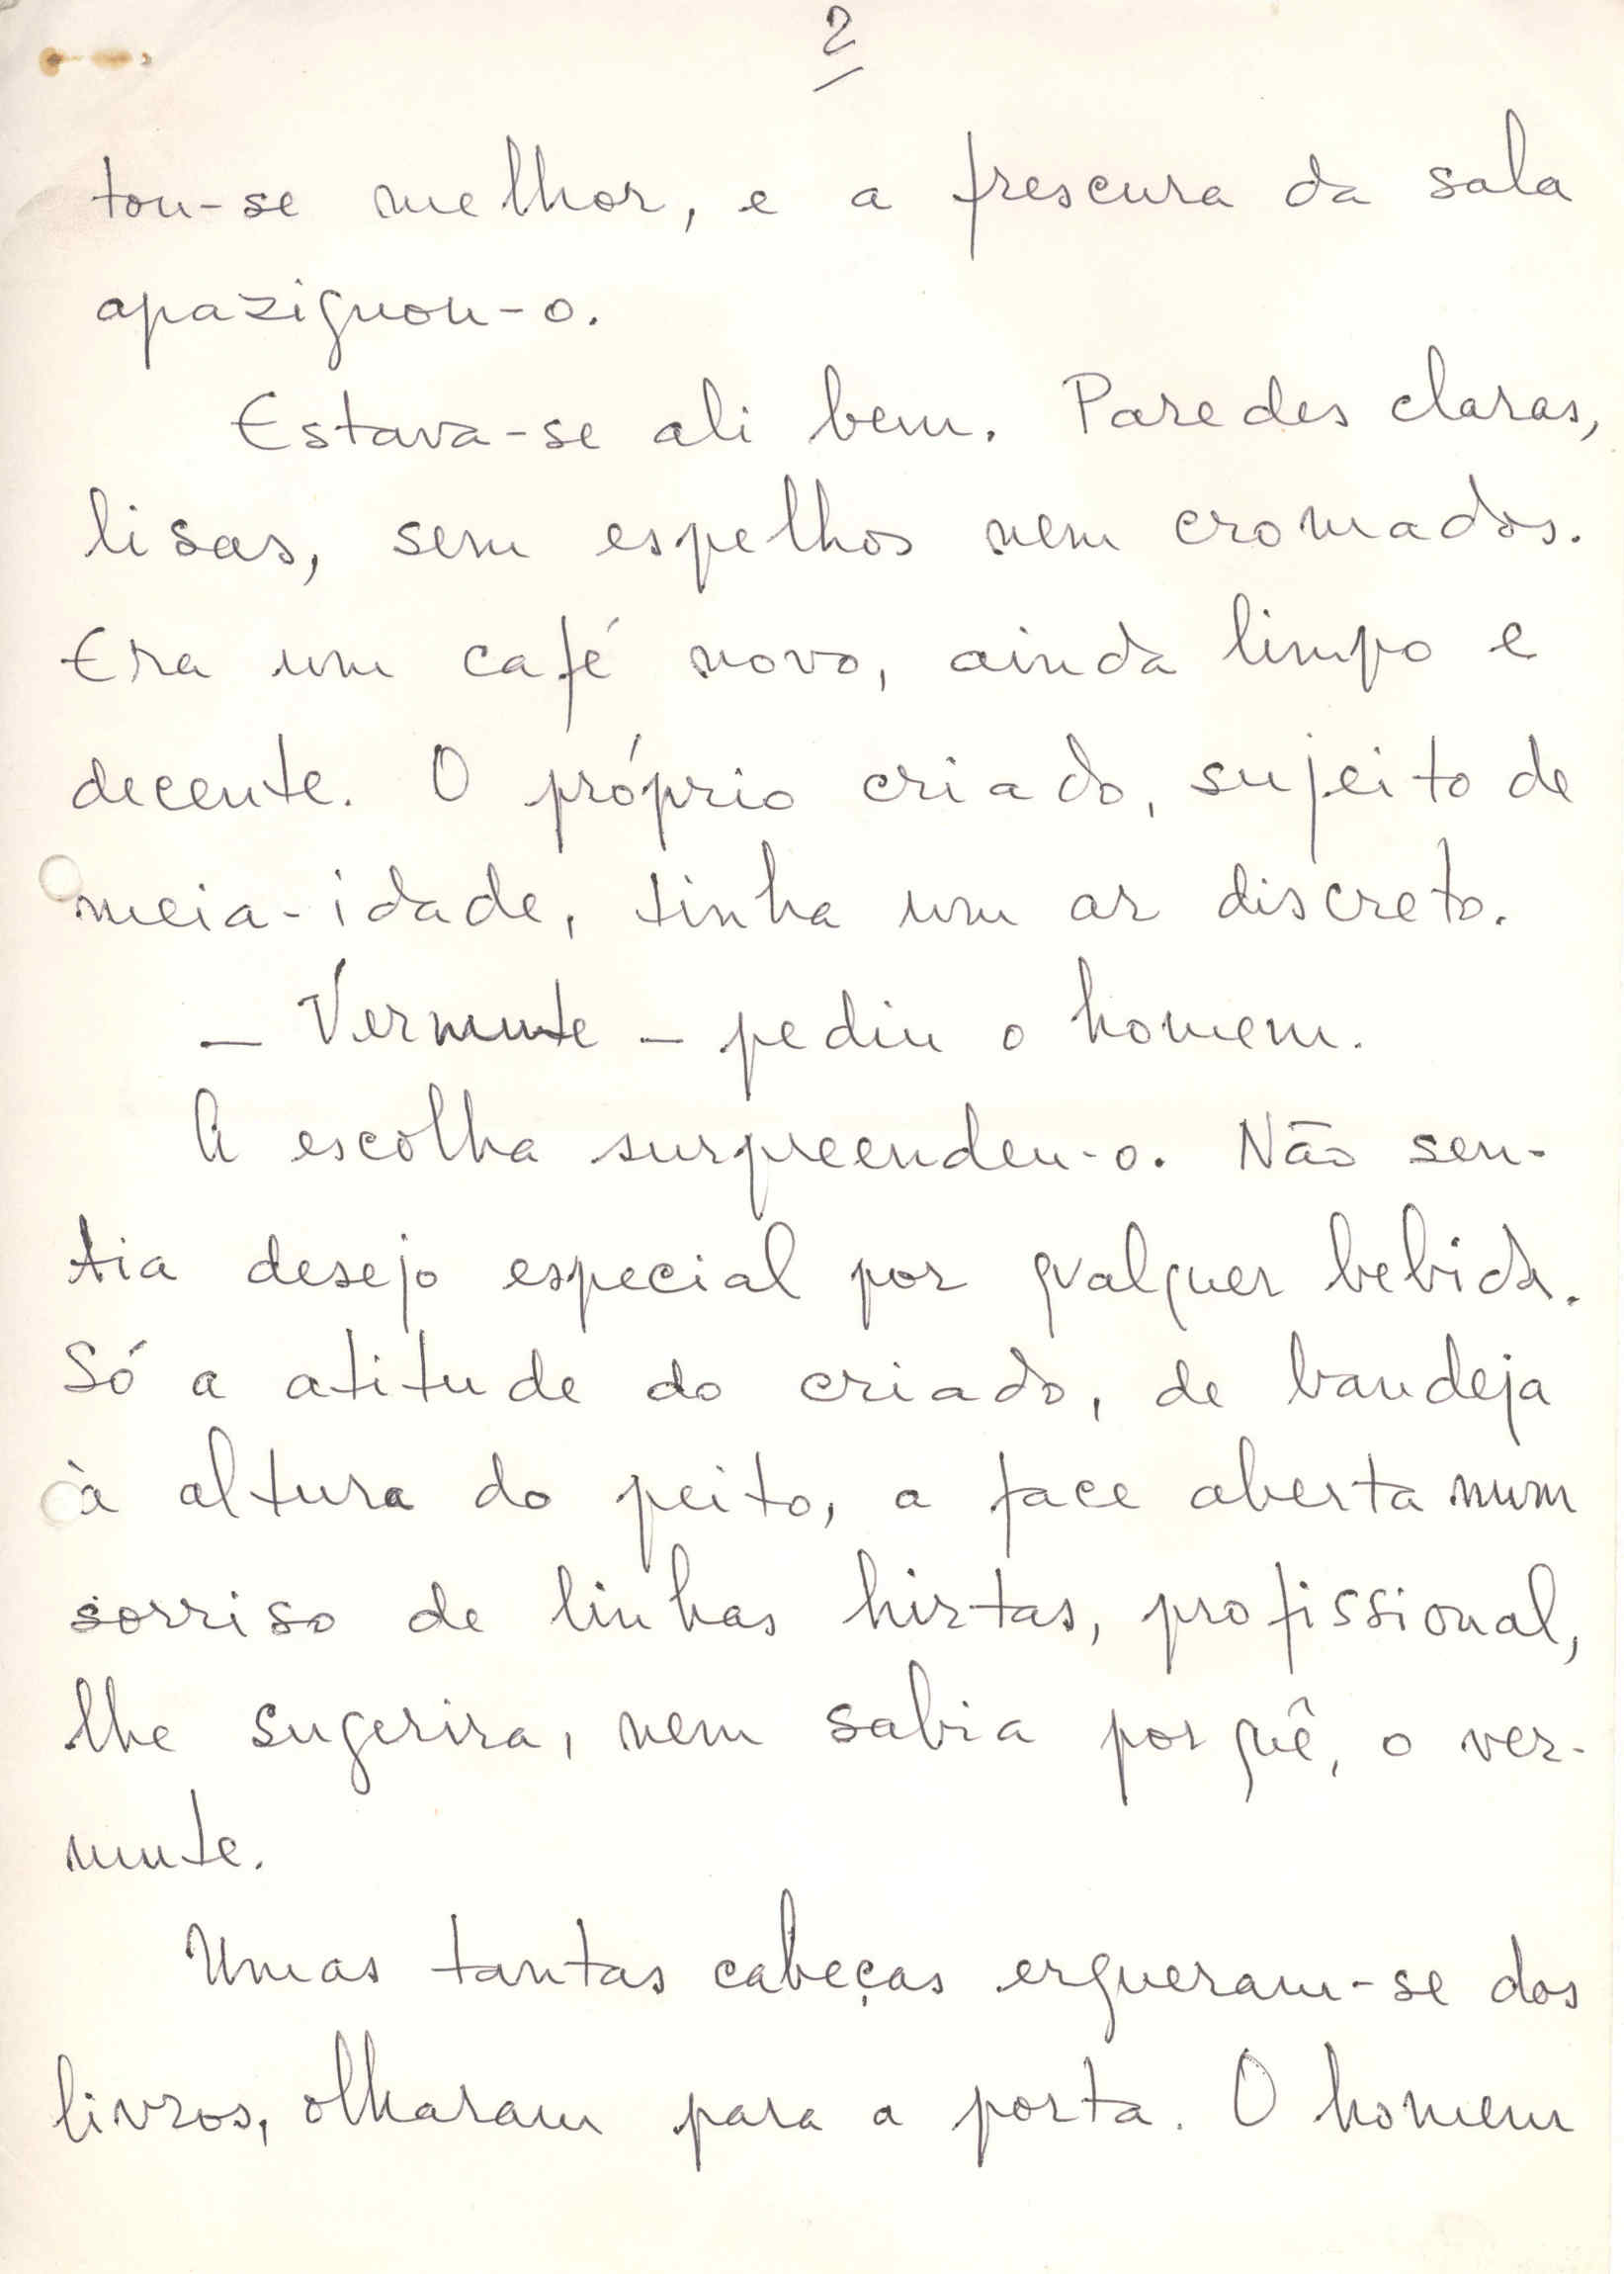 2
tou-se melhor, e a frescura da sala
apaziguou-o.
Estava-se ali bem. Paredes claras,
lisas, sem espelhos nem cromados.
Era um café novo, ainda limpo e
decente. O próprio criado, sujeito de
meia-idade, tinha um ar discreto.
— Vermute — pediu o homem.
A escolha surpreendeu-o. Não sen-
tia desejo especial por qualquer bebida.
Só a atitude do criado, de bandeja
à altura do peito, a face aberta num
sorriso de linhas hirtas, profissional,
lhe sugerira, nem sabia porquê, o ver-
mute.
Umas tantas cabeças ergueram-se dos
livros, olharam para a porta. O homem